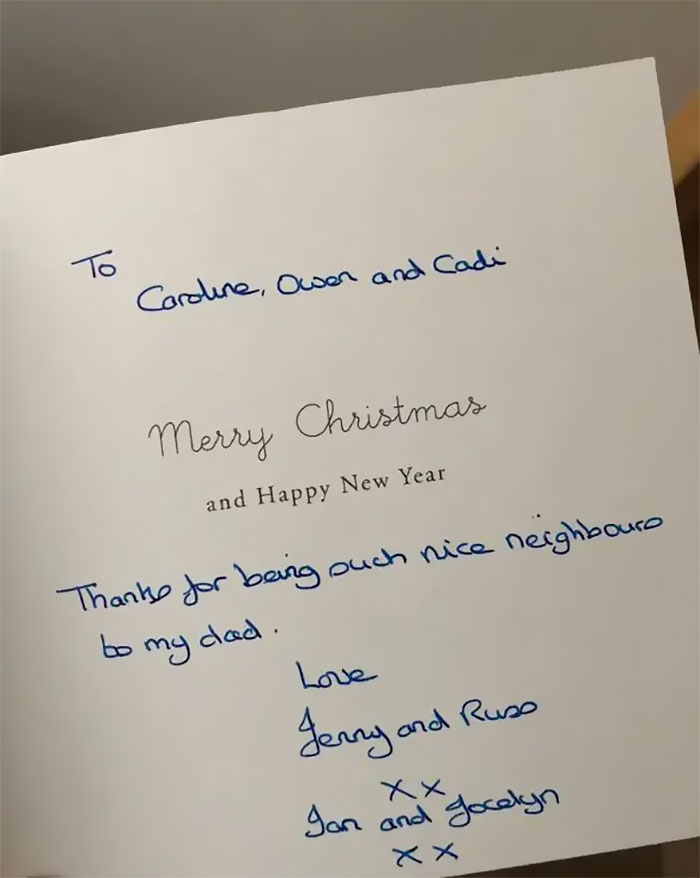 To
Caroline, Owen and Cadi
Merry Christmas
and Happy New Year
Thanks for being such nice neighbours
to my dad.
Love
Jenny and Russ
xx
Ian and Jocelyn
xx